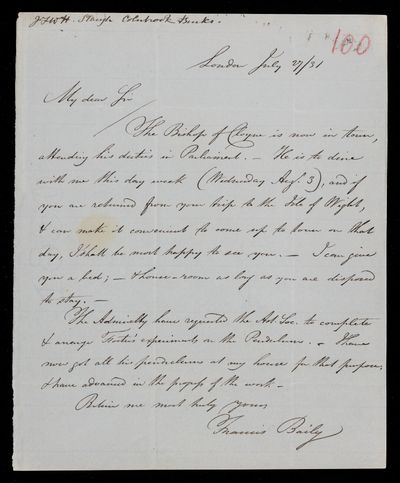 JFWH. Slough Colnbrook Bucks.
100
London July 27/31
My dear Sir
The Bishop of Cloyne is now in town,
attending his duties in Parliament. — He is to dine
with me this day week (Wednesday Augt. 3), and if
you are returned from your trip to the Isle of Wight,
& can make it convenient to come up to town on that
day, I shall be most happy to see you. — I can give
you a bed; — & house-room as long as you are disposed
to stay. —
The Admiralty have requested the Ast. Soc. to complete
& arrange Foster's experiments on the Pendulum. — I have
now got all the pendulums at my house for that purpose,
& have advanced in the progress of the work —
Believe me most truly yours
Francis Baily